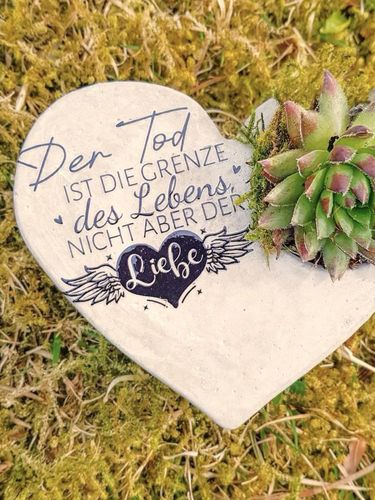 Der Tod
IST DIE GRENZE
des Lebens,
NICHT ABER DER
Liebe